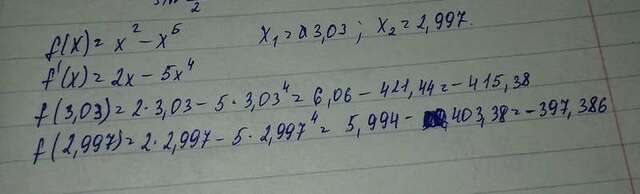 f(x) = x² - x⁵ x₁ = 3,03 ; x₂ = 2,997
f'(x) = 2x - 5x⁴
f(3,03) = 2·3,03 - 5·3,03⁴ = 6,06 - 421,44 = -415,38
f(2,997) = 2·2,997 - 5·2,997⁴ = 5,994 - 403,38 = -397,386